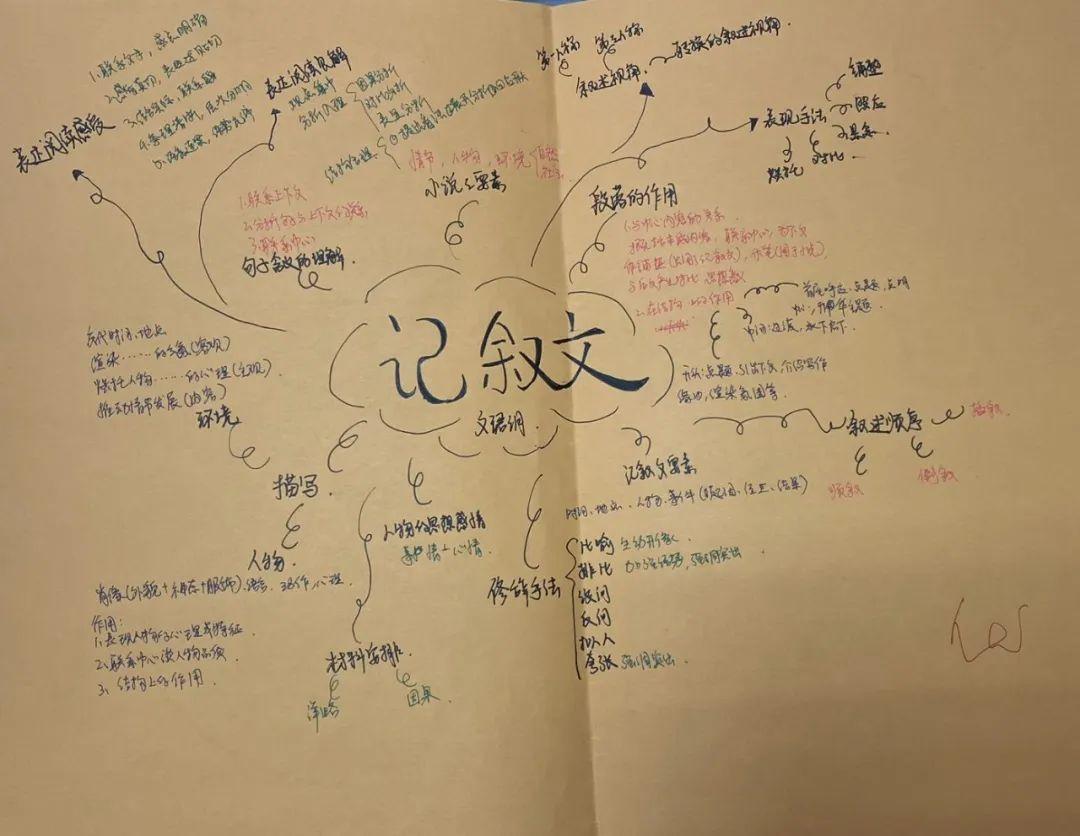 记叙文
文珺钥
表达阅读感受
1.联系文字，感长明确
2.感情真切，表达贴切
3.结合
4.条理清晰，层次分明
5.语言连贯
表达阅读见解
观点集中
分析合理
结构合理
因果分析
对比分析
表里分析
情节，人物，环境
自然
社会
小说三要素
1.联系上下文
2.分析句与上下文的关系
3.联系中心
句子含义的理解.
第一人称
第三人称
叙述视角.
转换的叙述视角
表现手法
铺垫
照应
悬念.
对比.
烘托
段落的作用
1.与中心内容的关系.
概括本段内容，联系中心，
作铺垫(只用记叙文)，伏笔(用于小说)
与后文产生对比，设悬念
2.在结构上的作用
首尾呼应，点题，点明
中间:过渡，承下启下.
开头:点题，引出下文，介绍写作
缘由，渲染氛围等
叙述顺序
插叙.
顺叙
倒叙
记叙文要素
时间、地点、人物、事件(起因、经过、结果)
修辞手法
比喻 生动形象
排比 加强语势，强调突出.
设问
反问
拟人
夸张 强调突出.
交代时间、地点
渲染......的气氛(客观)
烘托人物......的心理(主观)
推动情节发展(内容)
环境
描写.
人物
肖像(外貌+神态+服饰)、语言、动作、心理
作用:
1.表现人物的心理或特征.
2.联系中心谈人物品质.
3.结构上的作用.
人物的思想感情
事情+心情.
材料安排
详略
因果.